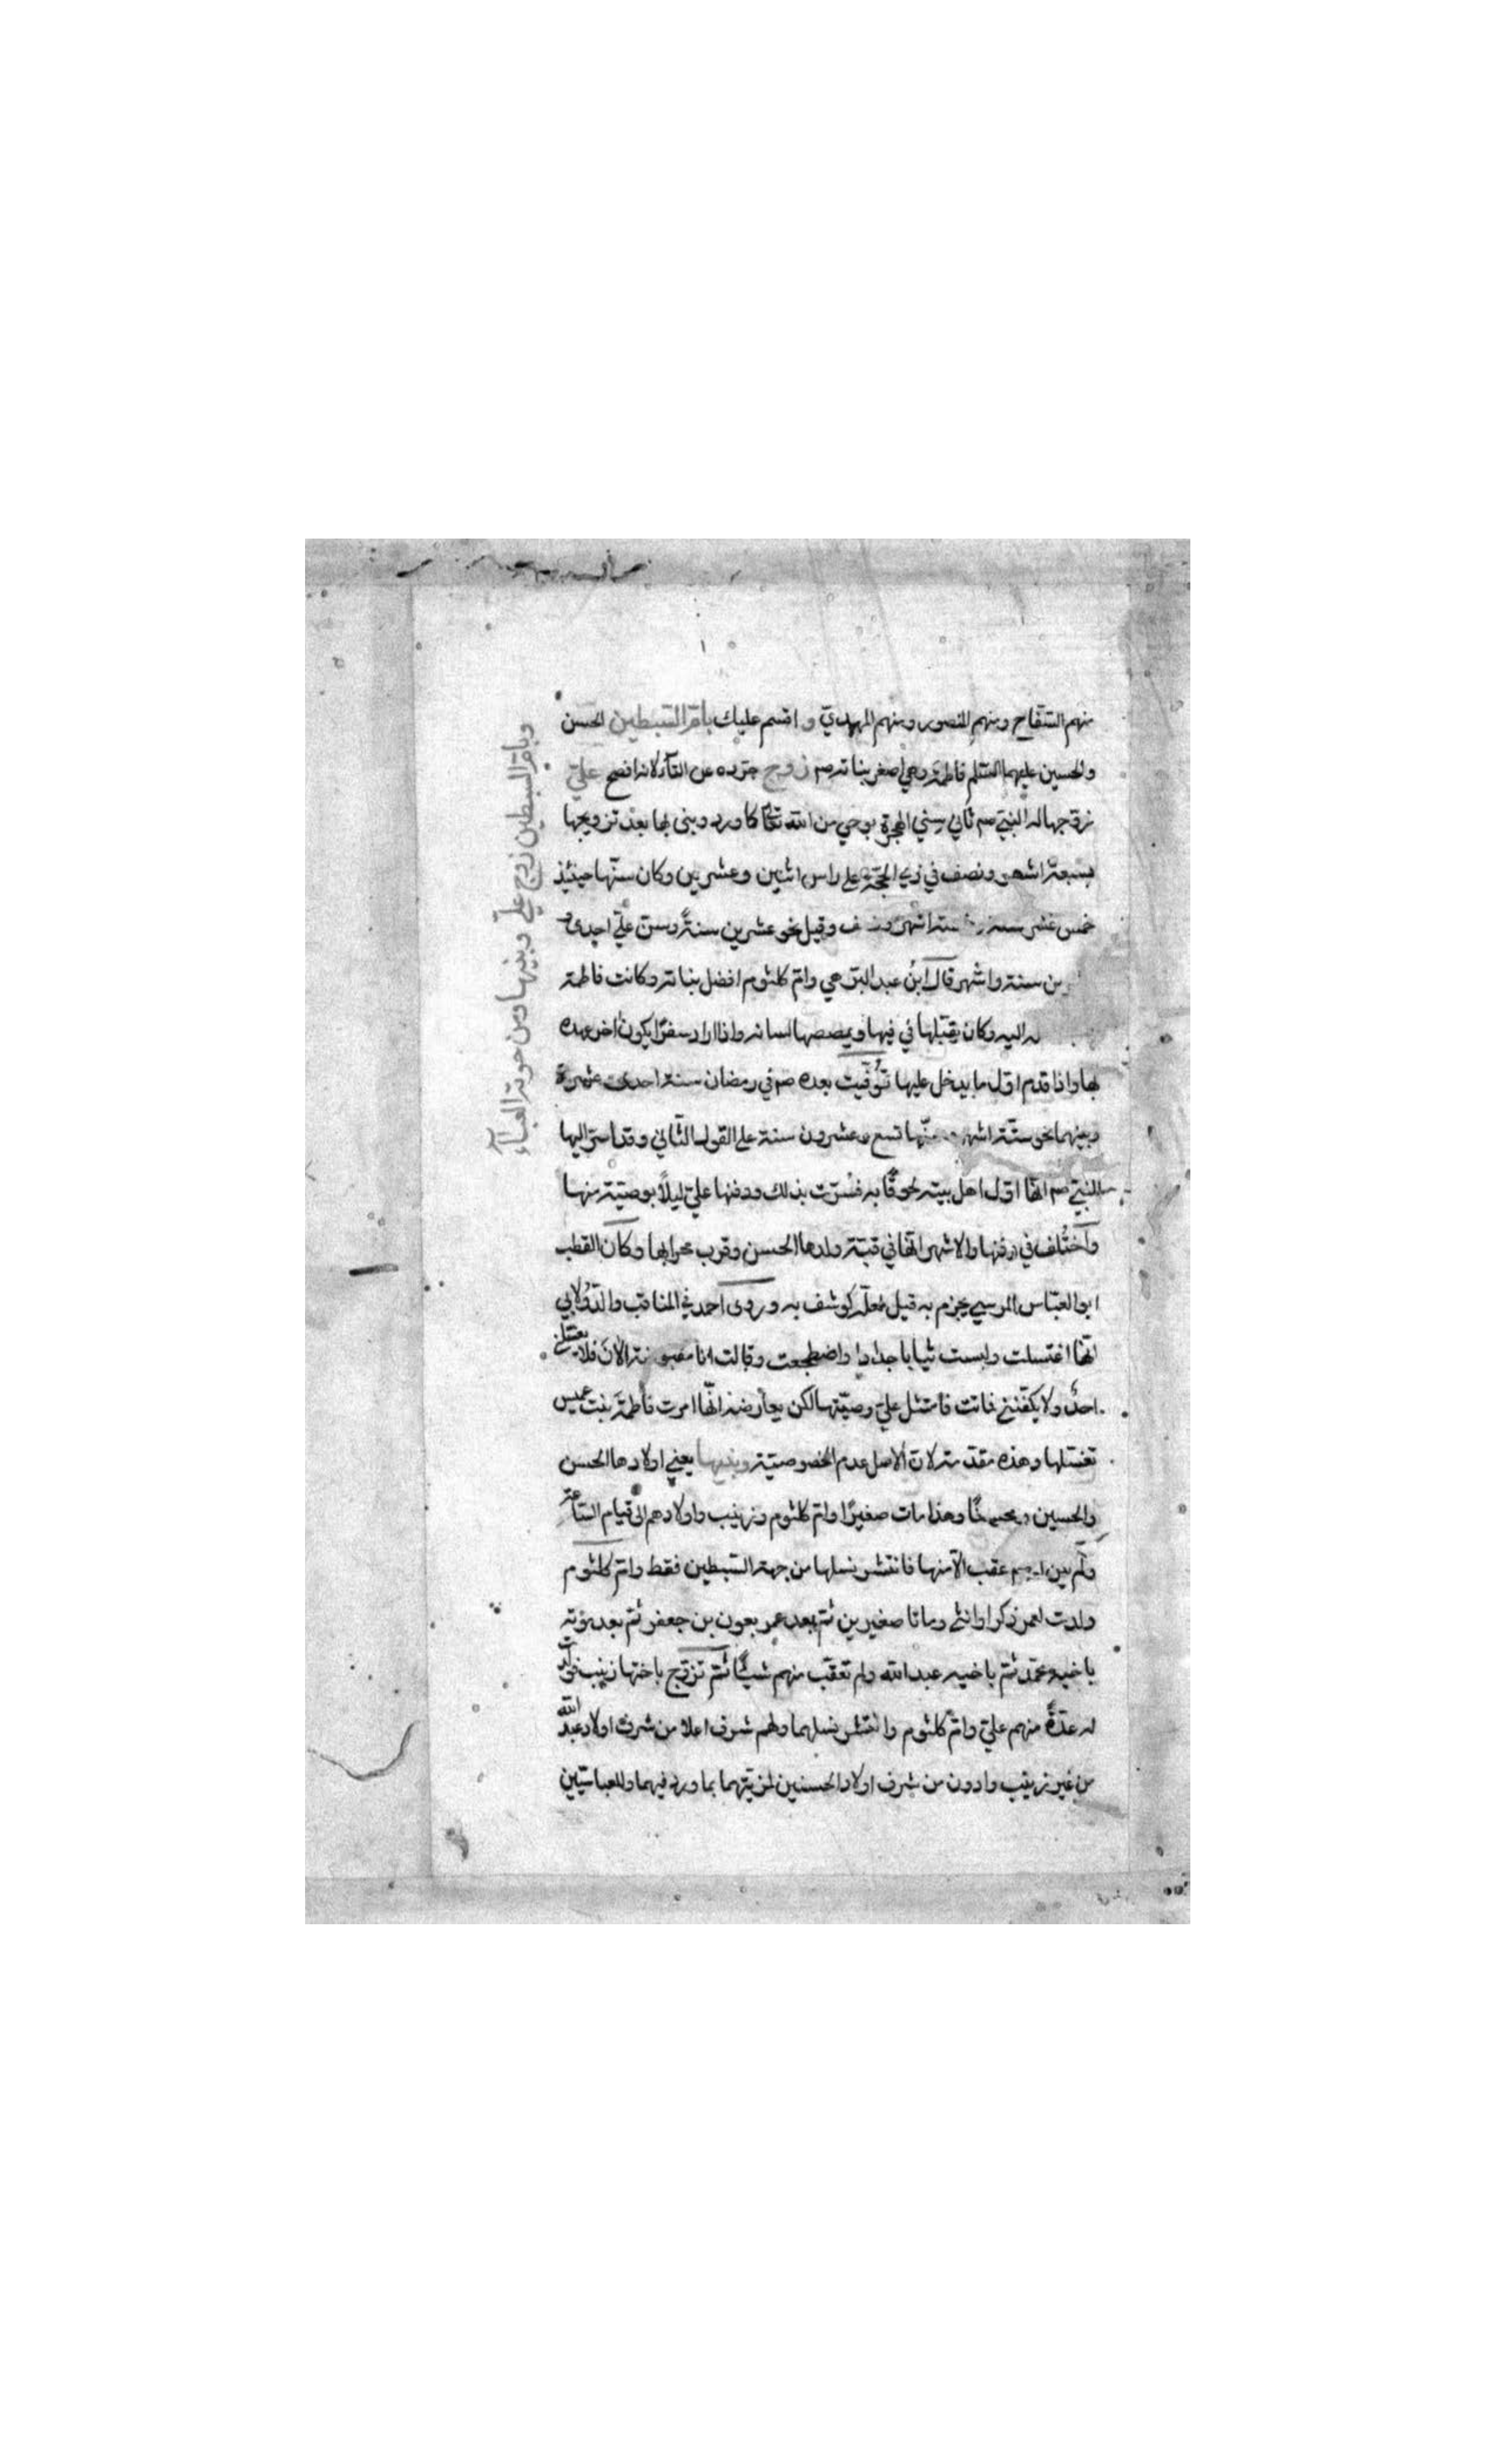 منهم السّفّاح ومنهم المنصور ومنهم المهديّ و اقسم عليك بامّ السّبطين الحسن
والحسين عليهما السّلام فاطمة وهي اصغر بناته صم زوج جرّده عن التاء لانه افصح عليّ
زوّجها له النبيّ صم ثاني سني الهجرة بوحي من الله تعالى كما ورد وبنى بها بعد تزويجها
بسبعة اشهر ونصف في ذي الحجّة على راس اثنين وعشرين وكان سنّها حينئذ
خمس عشر سنة ستة اشهر وقيل نحو عشرين سنةً وسن عليّ احدى و
ين سنة واشهر قال ابن عبد البرّ هي وامّ كلثوم افضل بناته وكانت فاطمة
اليه وكان يقبّلها في فيها ويمصصها لسانه واذا اراد سفرًا يكون اخر عهده
بها واذا قدم اوّل ما يدخل عليها توُفّيت بعده صم في رمضان سنة احدى عشرة
وبينهما نحو ستّة اشهر تسع وعشرون سنة على القول الثّاني وقد اسرّ اليها
النبيّ صم انّها اوّل اهل بيته لحوقًا به فسرّت بذلك ودفنها عليّ ليلاً بوصيّة منها
واختُلف في دفنها والاشهر انّها في قبّة ولدها الحسن وقرب محرابها وكان القطب
ابو العبّاس المرسي يجزم به قيل لعلّه كوشف به وروى احمد في المناقب والدّولابي
انّها اغتسلت ولبست ثيابا جدادا واضطجعت وقالت انا مقبوضة الآن فلا يغسّلني
احدٌ ولا يكفّنني فماتت فامتثل عليّ وصيّتها لكن يعارضه انّها امرت فاطمة بنت عميس
تغسّلها وهذه مقدّمة لانّ الاصل عدم الخصوصيّة وبنيها يعني اولادها الحسن
والحسين وهذا مات صغيرًا وامّ كلثوم وزينب واولادهم الى قيام السّاعة
ولم عقب الّا منها فانتشر نسلها من جهة السّبطين فقط وامّ كلثوم
ولدت لعمر ذكرا وانثى وماتا صغيرين ثمّ بعد عمر بعون بن جعفر ثمّ بعد موته
باخيه محمّد ثمّ باخيه عبد الله ولم تعقّب منهم شيئًا ثمّ تزوّج باختها زينب فولدت
له عدّةً منهم عليّ وامّ كلثوم وانتشر نسلهما ولهم شرف اعلا من شرف اولاد عبد الله
من غير زينب وادون من شرف اولاد الحسنين لمزيّتهما بما ورد فيهما وللعباسيّين
وبامّ السبطين زوج عليّ وبنيها ومن حوته العباء